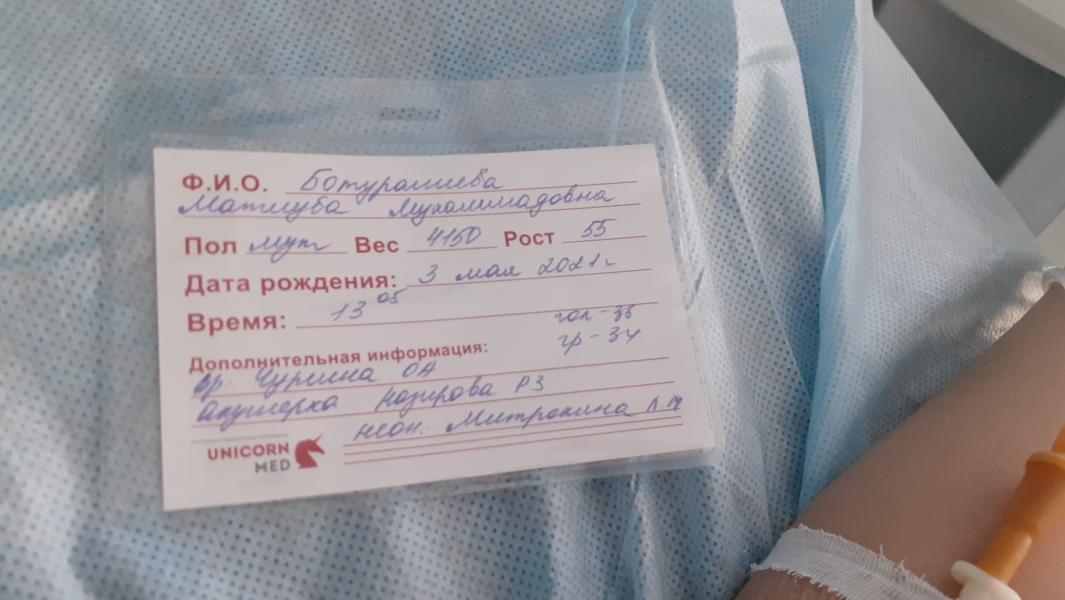 Ф.И.О. Ботурашева
Матлуба Мухаммадовна
Пол муж Вес 4150 Рост 55
Дата рождения: 3 мая 2021г
Время: 13 05
гол - 36
гр - 34
Дополнительная информация:
вр. Чурсина ОА
Акушерка Назирова РЗ
неон. Митрохина Л.
UNICORN
MED